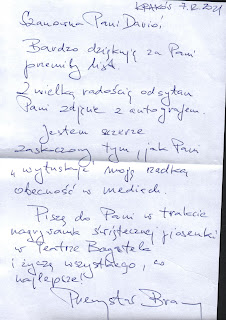 KRAKÓW 7.12.2021
Szanowna Pani Davio!
Bardzo dziękuję za Pani
przemiły list.
Z wielką radością odsyłam
Pani zdjęcie z autografem.
Jestem szczerze
zaskoczony tym, jak Pani
"wytuskuje" moją rzadką
obecność w mediach.
Piszę do Pani w trakcie
nagrywania świątecznej piosenki
w Teatrze Bagatela
i życzę wszystkiego, co
najlepsze!
Przemysław